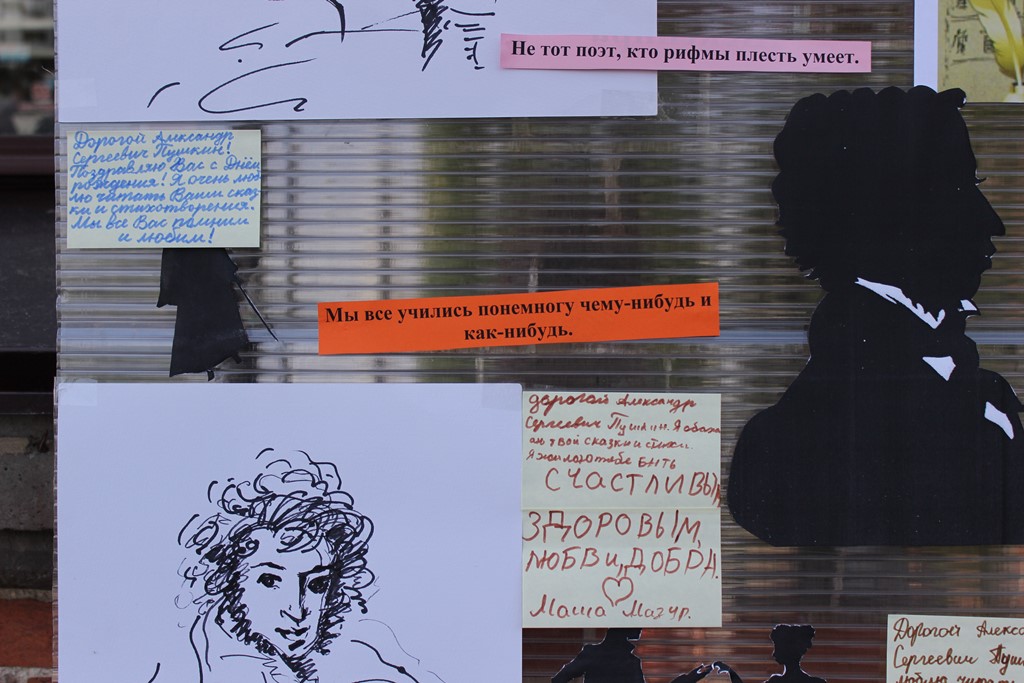 Не тот поэт, кто рифмы плесть умеет.
Дорогой Александр
Сергеевич Пушкин!
Поздравляю Вас с Днём
рождения! Я очень люб
лю читать Ваши сказ
ки и стихотворения.
Мы все Вас помним
и любим!
Мы все учились понемногу чему-нибудь и
как-нибудь.
дорогой Александр
Сергеевич Пушкин. Я обожа
ю твой сказки и стихи.
Я желаю тебе быть
СЧАСТЛИВЫМ,
ЗДОРОВЫМ,
ЛЮБВИ, ДОБРА.
Маша Мазур.
Дорогой Алекса
Сергеевич Пушк
люблю чита